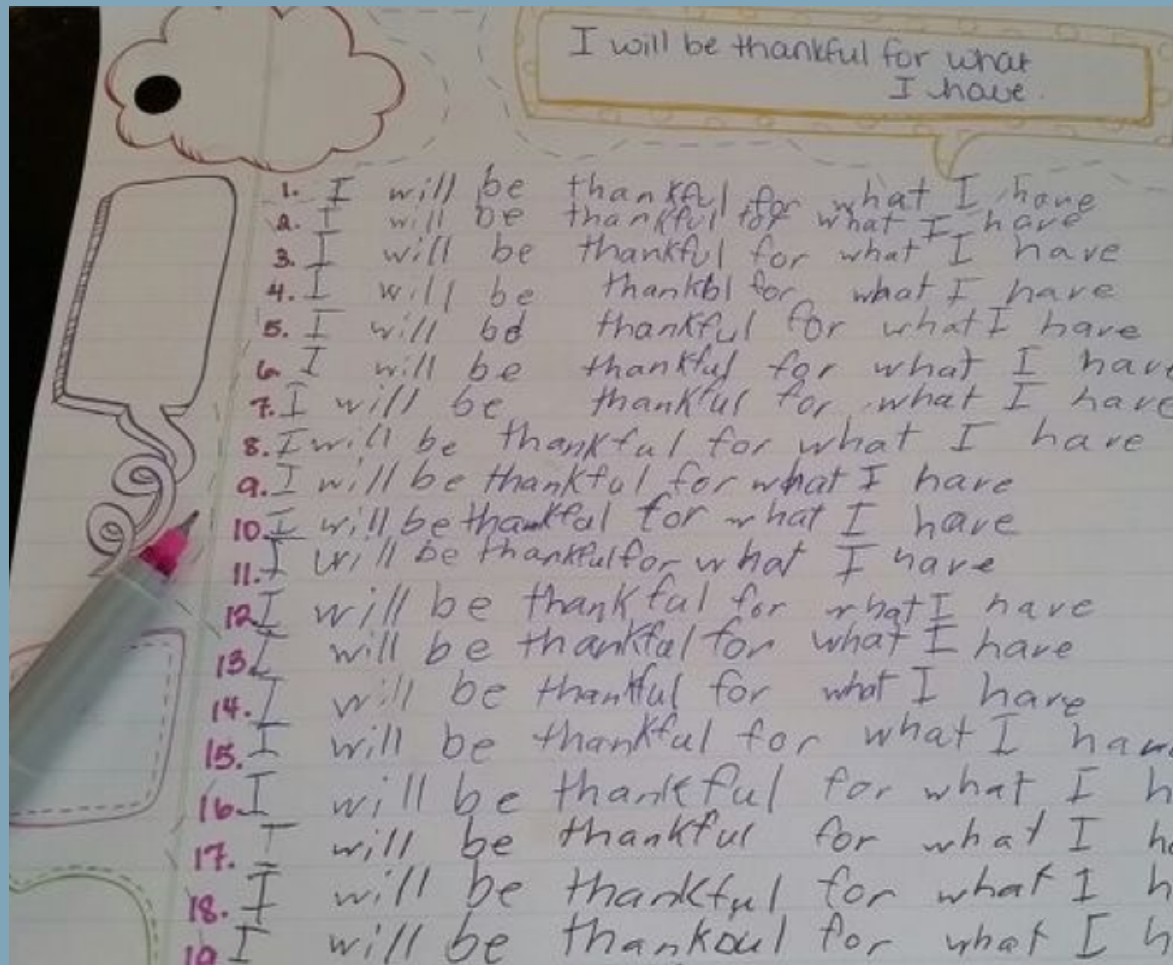 I will be thankful for what
I have.
1. I will be thankful for what I have
2. I will be thankful for what I have
3. I will be thankful for what I have
4. I will be thankbl for what I have
5. I will bd thankful for what I have
6. I will be thankful for what I have
7. I will be thankful for what I have
8. I will be thankful for what I have
9. I will be thankful for what I have
10. I will be thankful for what I have
11. I will be thankful for what I have
12. I will be thankful for what I have
13. I will be thankful for what I have
14. I will be thankful for what I have
15. I will be thankful for what I hav
16. I will be thankful for what I h
17. I will be thankful for what I ha
18. I will be thankful for what I h
19 I will be thankoul for what I h